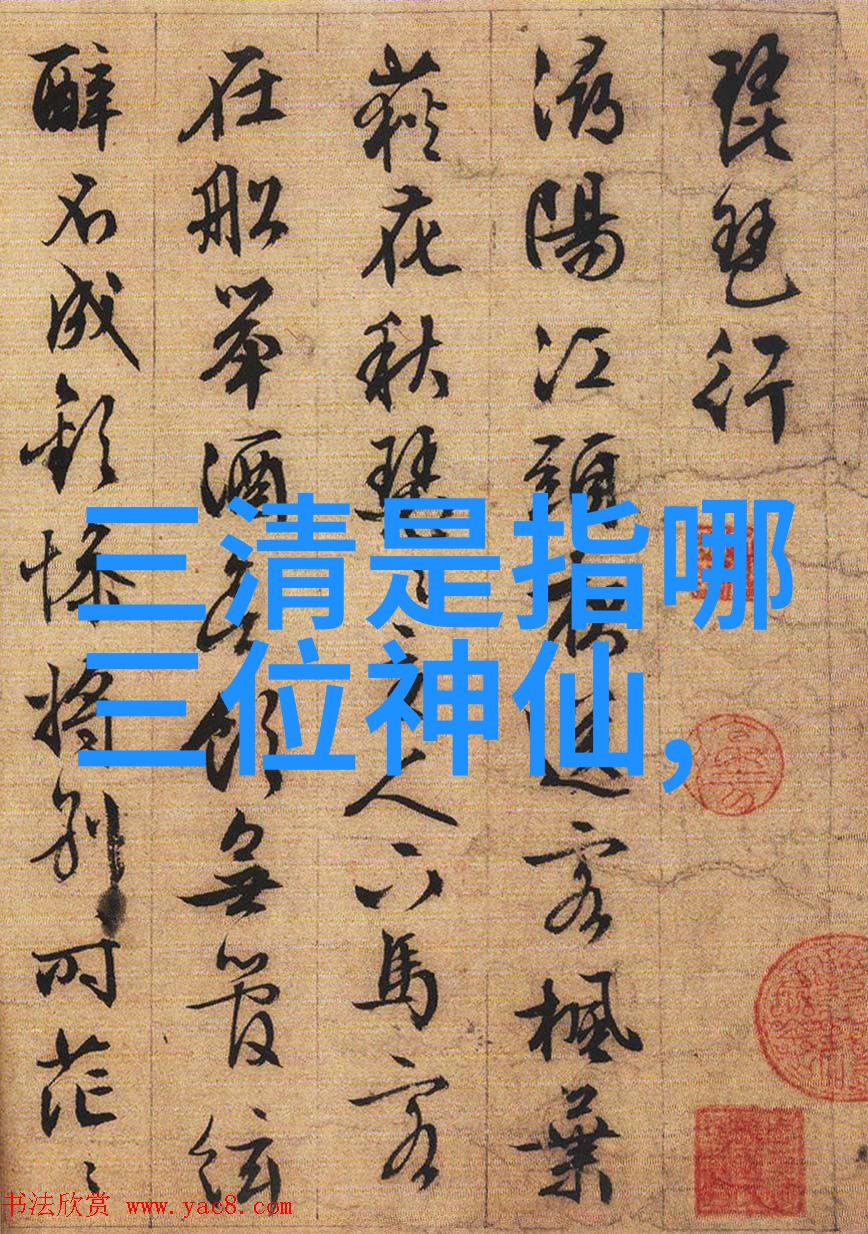 琵琶行
潯陽江頭夜送客楓葉
荻花秋瑟〻主人下馬客
在船舉酒欲飲無管絃
醉不成歡慘將別〻時茫〻
三清是指哪
三位神仙,
书法欣赏 www.yac8.com